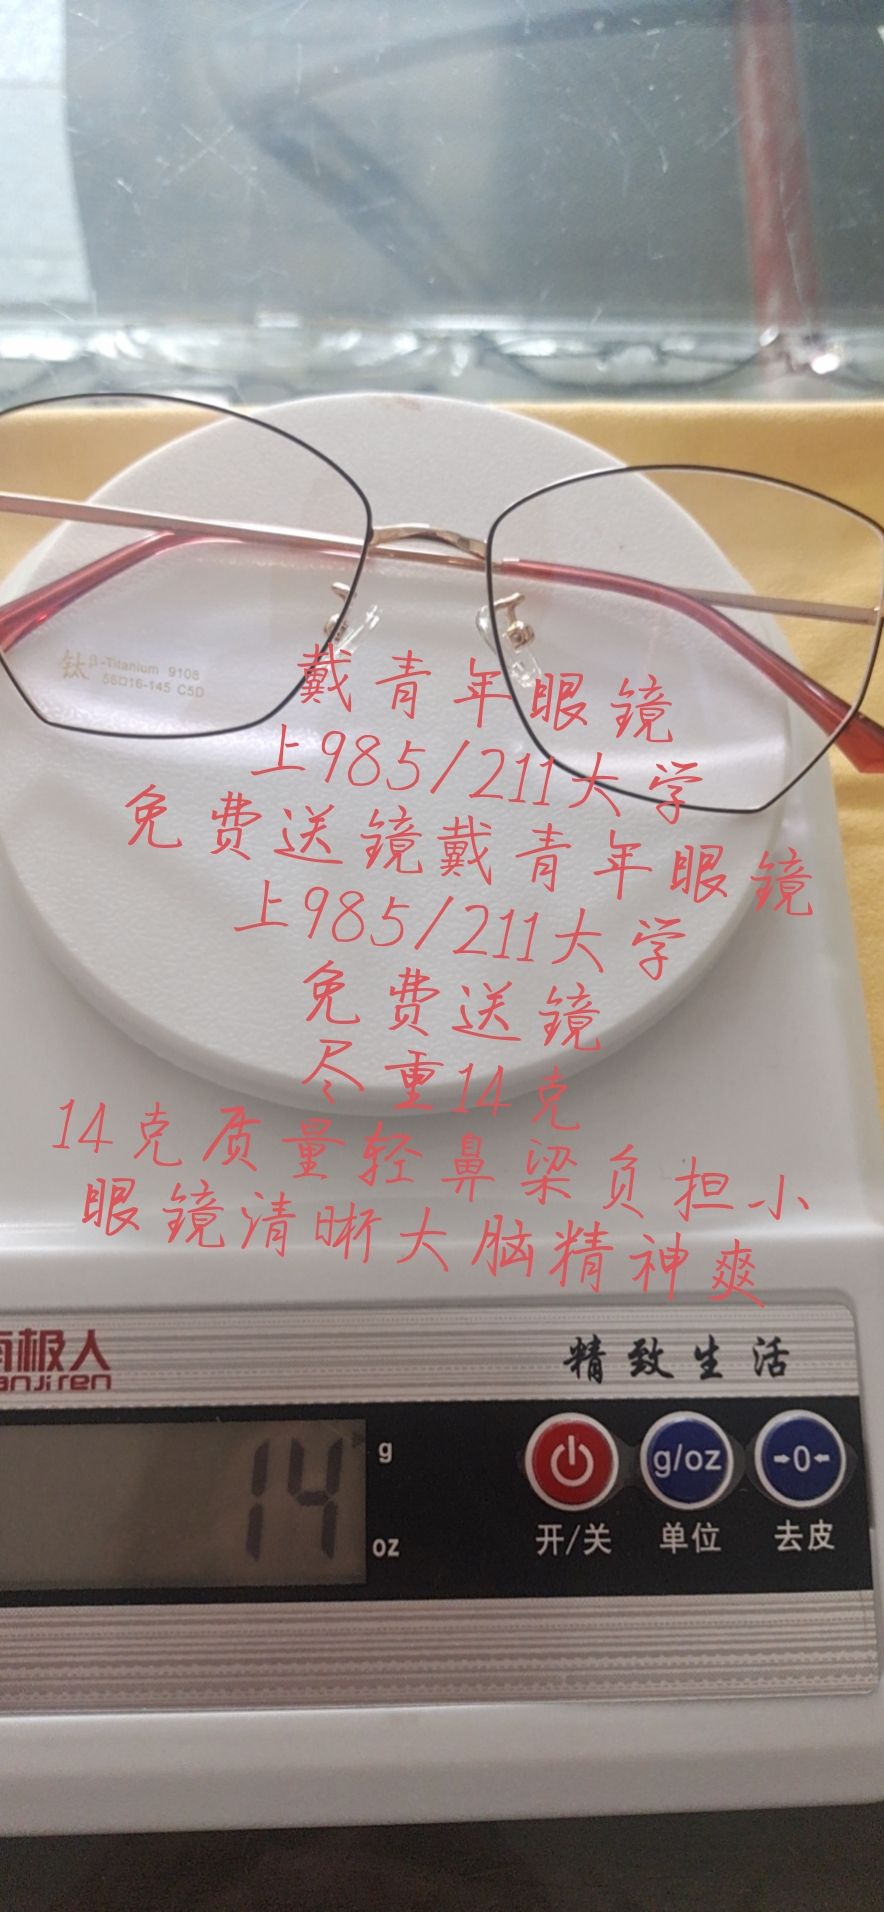 钛 β-Titanium 9108
56□16-145 C5D
戴青年眼镜
上985/211大学
免费送镜戴青年眼镜
上985/211大学
免费送镜
尽重14克
14克质量轻鼻梁负担小
眼镜清晰大脑精神爽
极人
精致生活
anjiren
14
g
oz
g/oz
→0←
开/关 单位 去皮